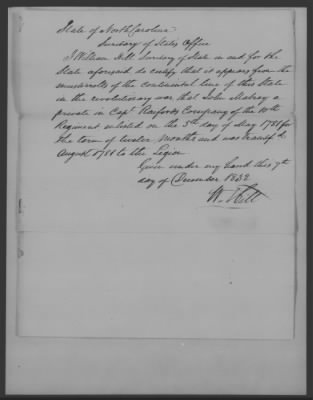 State of North Carolina
Secretary of States Office
I William Hill Secretary of State in and for the
State aforesaid do certify that it appears from the
musterrolls of the continental line of this State
in the revolutionary war that John
private in Capt Raifords Company of the 10th
Regiment enlisted on the 5th day of May 1781 for
the term of twelve months and was transfd
August 1781 to the Legion
Given under my hand this 7th
day of December 1832
W. Hill